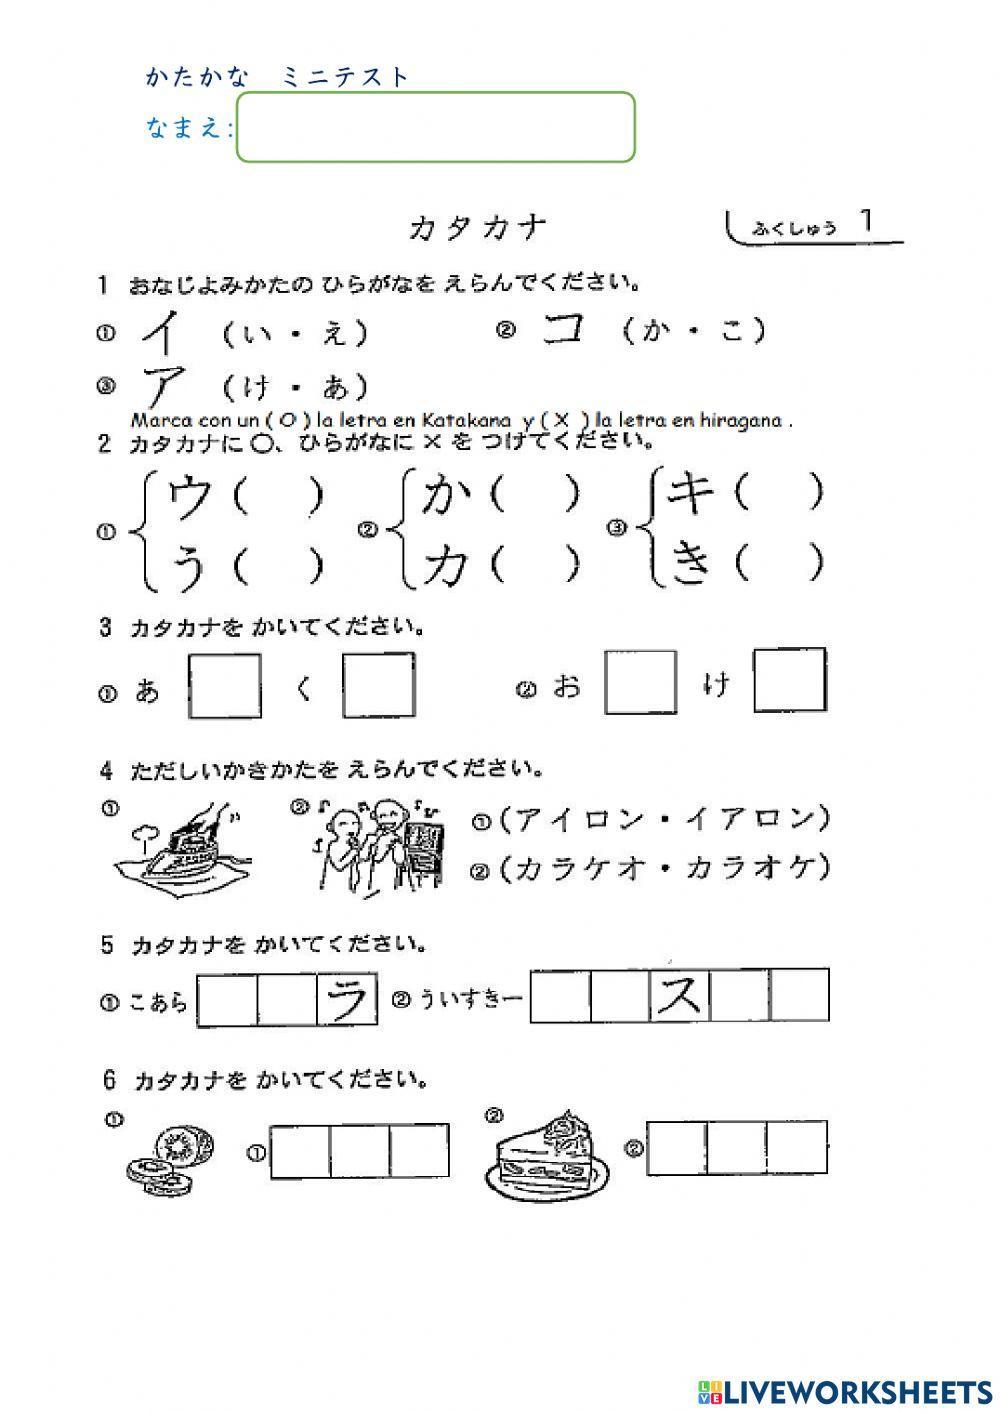 かたかな　ミニテスト
なまえ:
カタカナ
ふくしゅう 1
1 おなじよみかたの ひらがなを えらんでください。
① イ （い・え）　② コ （か・こ）
③ ア （け・あ）
Marca con un ( O ) la letra en Katakana y ( X ) la letra en hiragana .
2 カタカナに ○、ひらがなに × を つけてください。
① ウ（　） う（　）　② か（　） カ（　）　③ キ（　） き（　）
3 カタカナを かいてください。
① あ　く　② お　け
4 ただしいかきかたを えらんでください。
①　②　①（アイロン・イアロン）
②（カラケオ・カラオケ）
5 カタカナを かいてください。
① こあら　ラ　② ういすきー　ス
6 カタカナを かいてください。
①　①　②　②
LIVE LIVEWORKSHEETS